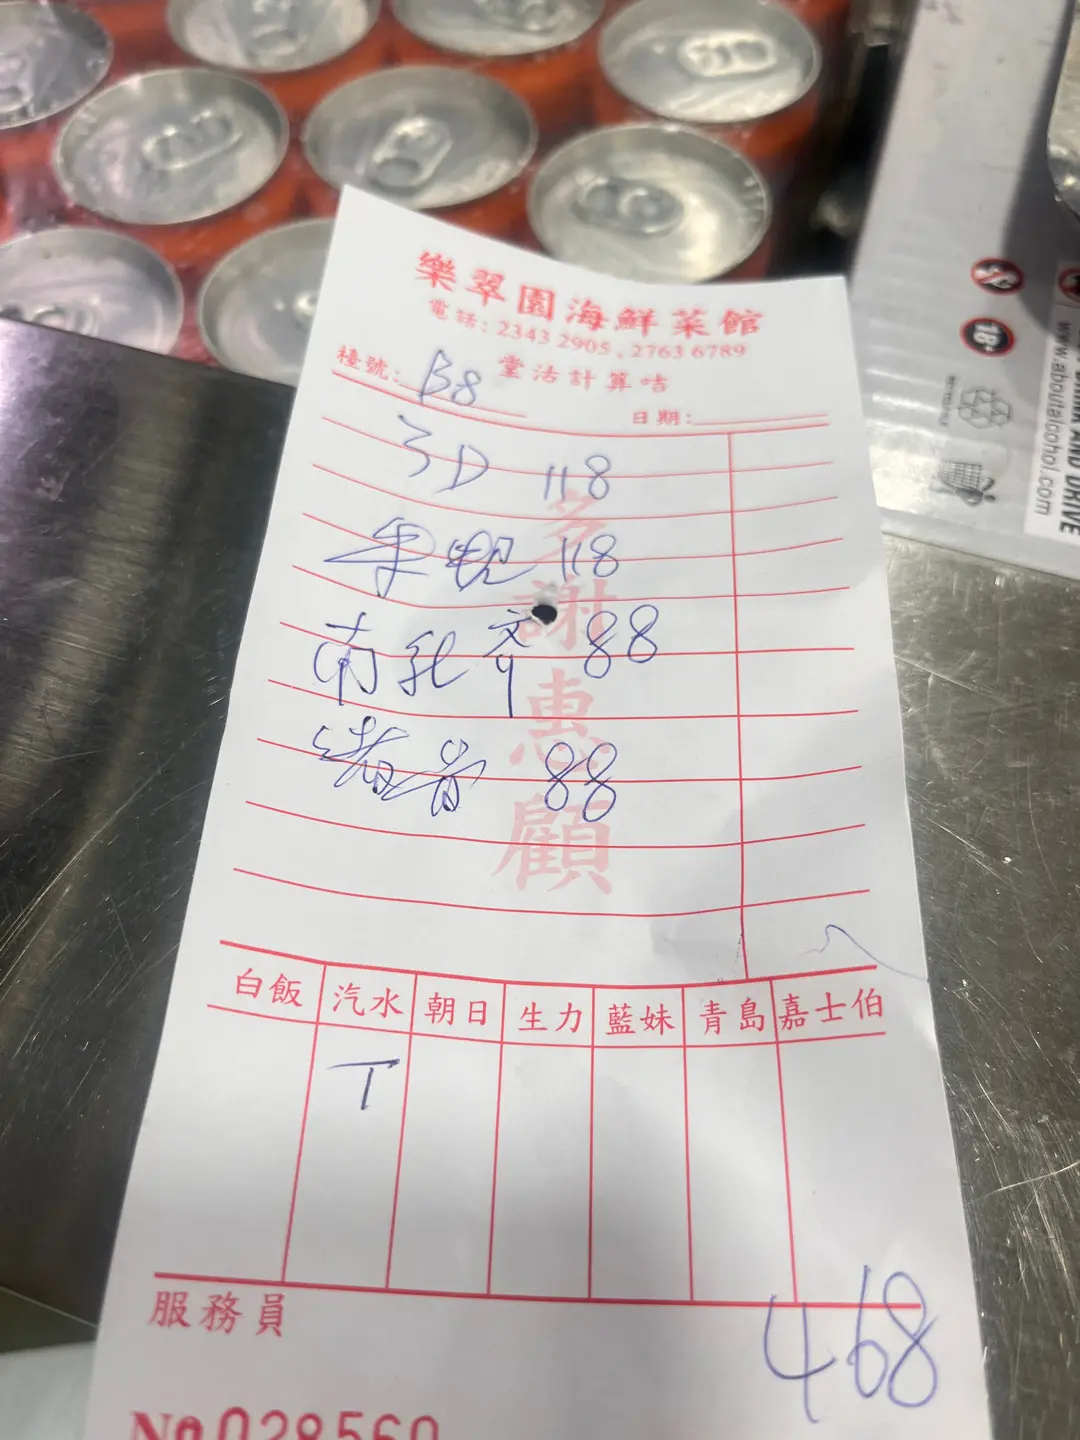 樂翠園海鮮菜館
電話: 2343 2905 , 2763 6789
堂沽計算咭
檯號: B8
日期:
3D 118
118
南乳齐 88
88
多謝惠顧
白飯 汽水 朝日 生力 藍妹 青島 嘉士伯
服務員
468
No 028560
18+
DRINK AND DRIVE
www.aboutalcohol.com